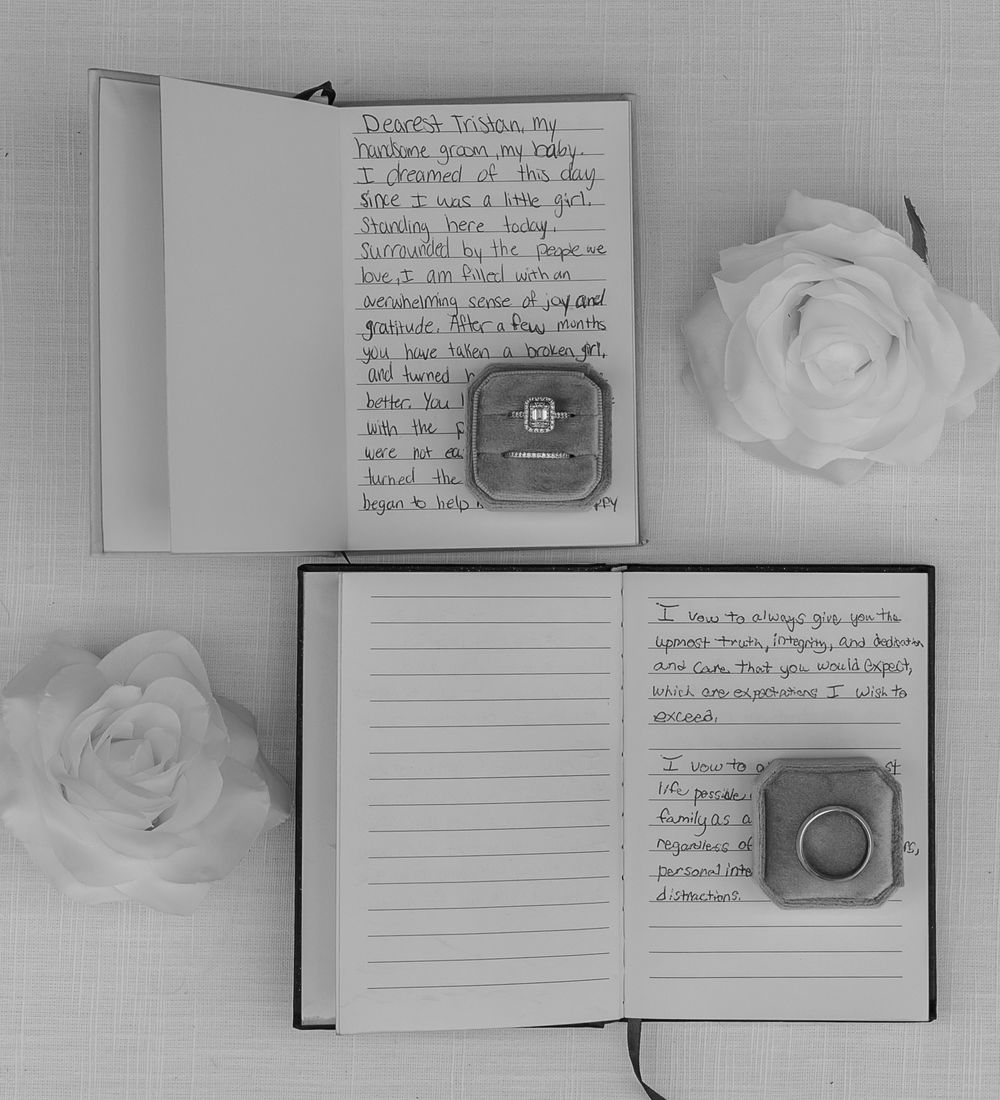 Dearest Tristan, my
handsome groom, my baby.
I dreamed of this day
since I was a little girl.
Standing here today,
surrounded by the people we
love, I am filled with an
overwhelming sense of joy and
gratitude. After a few months
you have taken a broken girl,
and turned
better. You
with the
were not
turned the
began to help
I vow to always give you the
upmost truth, integrity, and dedication
and care that you would expect,
which are expectations I wish to
exceed.
I vow to
life possible,
family as a
regardless of
personal
distractions.